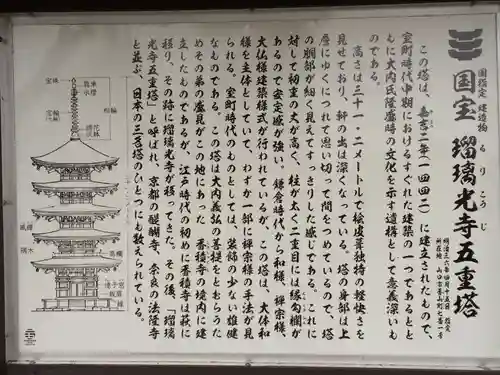 国指定 建造物
国宝 瑠璃光寺五重塔
る り こう じ
明治三六年四月十五日 指定
所在地 山口市香山町七番一号
この塔は、嘉吉二年（一四四二）に建立されたもので、
室町時代中期におけるすぐれた建築の一つであるとと
もに大内氏隆盛時の文化を示す遺構として意義深いも
のである。
高さは三十一・二メートルで桧皮葺独特の軽快さを
見せており、軒の出は深くなっている。塔の身部は上
層にゆくにつれて思い切って間をつめているので、塔
の胴部が細く見えてすっきりした感じである。これに
対して初重の丈が高く、柱が太く二重目には縁勾欄が
あるので安定感が強い。鎌倉時代から和様、禅宗様、
大仏様建築様式が行われているが、この塔は、大体和
様を主体としていて、わずか一部に禅宗様の手法が見
られる。室町時代のものとしては、装飾の少ない雄健
なものである。この塔は大内義弘の菩提をとむらうた
めその弟の盛見がこの地にあった香積寺の境内に建
立したものであるが、江戸時代の初めに香積寺は萩に
移り、その跡に瑠璃光寺が移ってきた。その後、「瑠璃
光寺五重塔」と呼ばれ、京都の醍醐寺、奈良の法隆寺
と並ぶ、日本の三名塔のひとつにも数えられている。
宝珠
竜車
水煙
相輪
宝輪
風鐸
積木